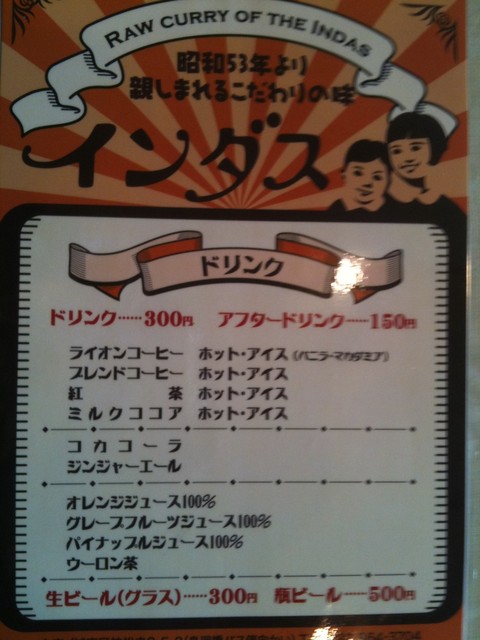 RAW CURRY OF THE INDAS
昭和53年より
親しまれるこだわりの味
インダス
ドリンク
ドリンク……300円 アフタードリンク……150円
ライオンコーヒー ホット・アイス（バニラ・マカダミア）
ブレンドコーヒー ホット・アイス
紅茶 ホット・アイス
ミルクココア ホット・アイス
コカコーラ
ジンジャーエール
オレンジジュース100%
グレープフルーツジュース100%
パイナップルジュース100%
ウーロン茶
生ビール(グラス)……300円 瓶ビール……500円